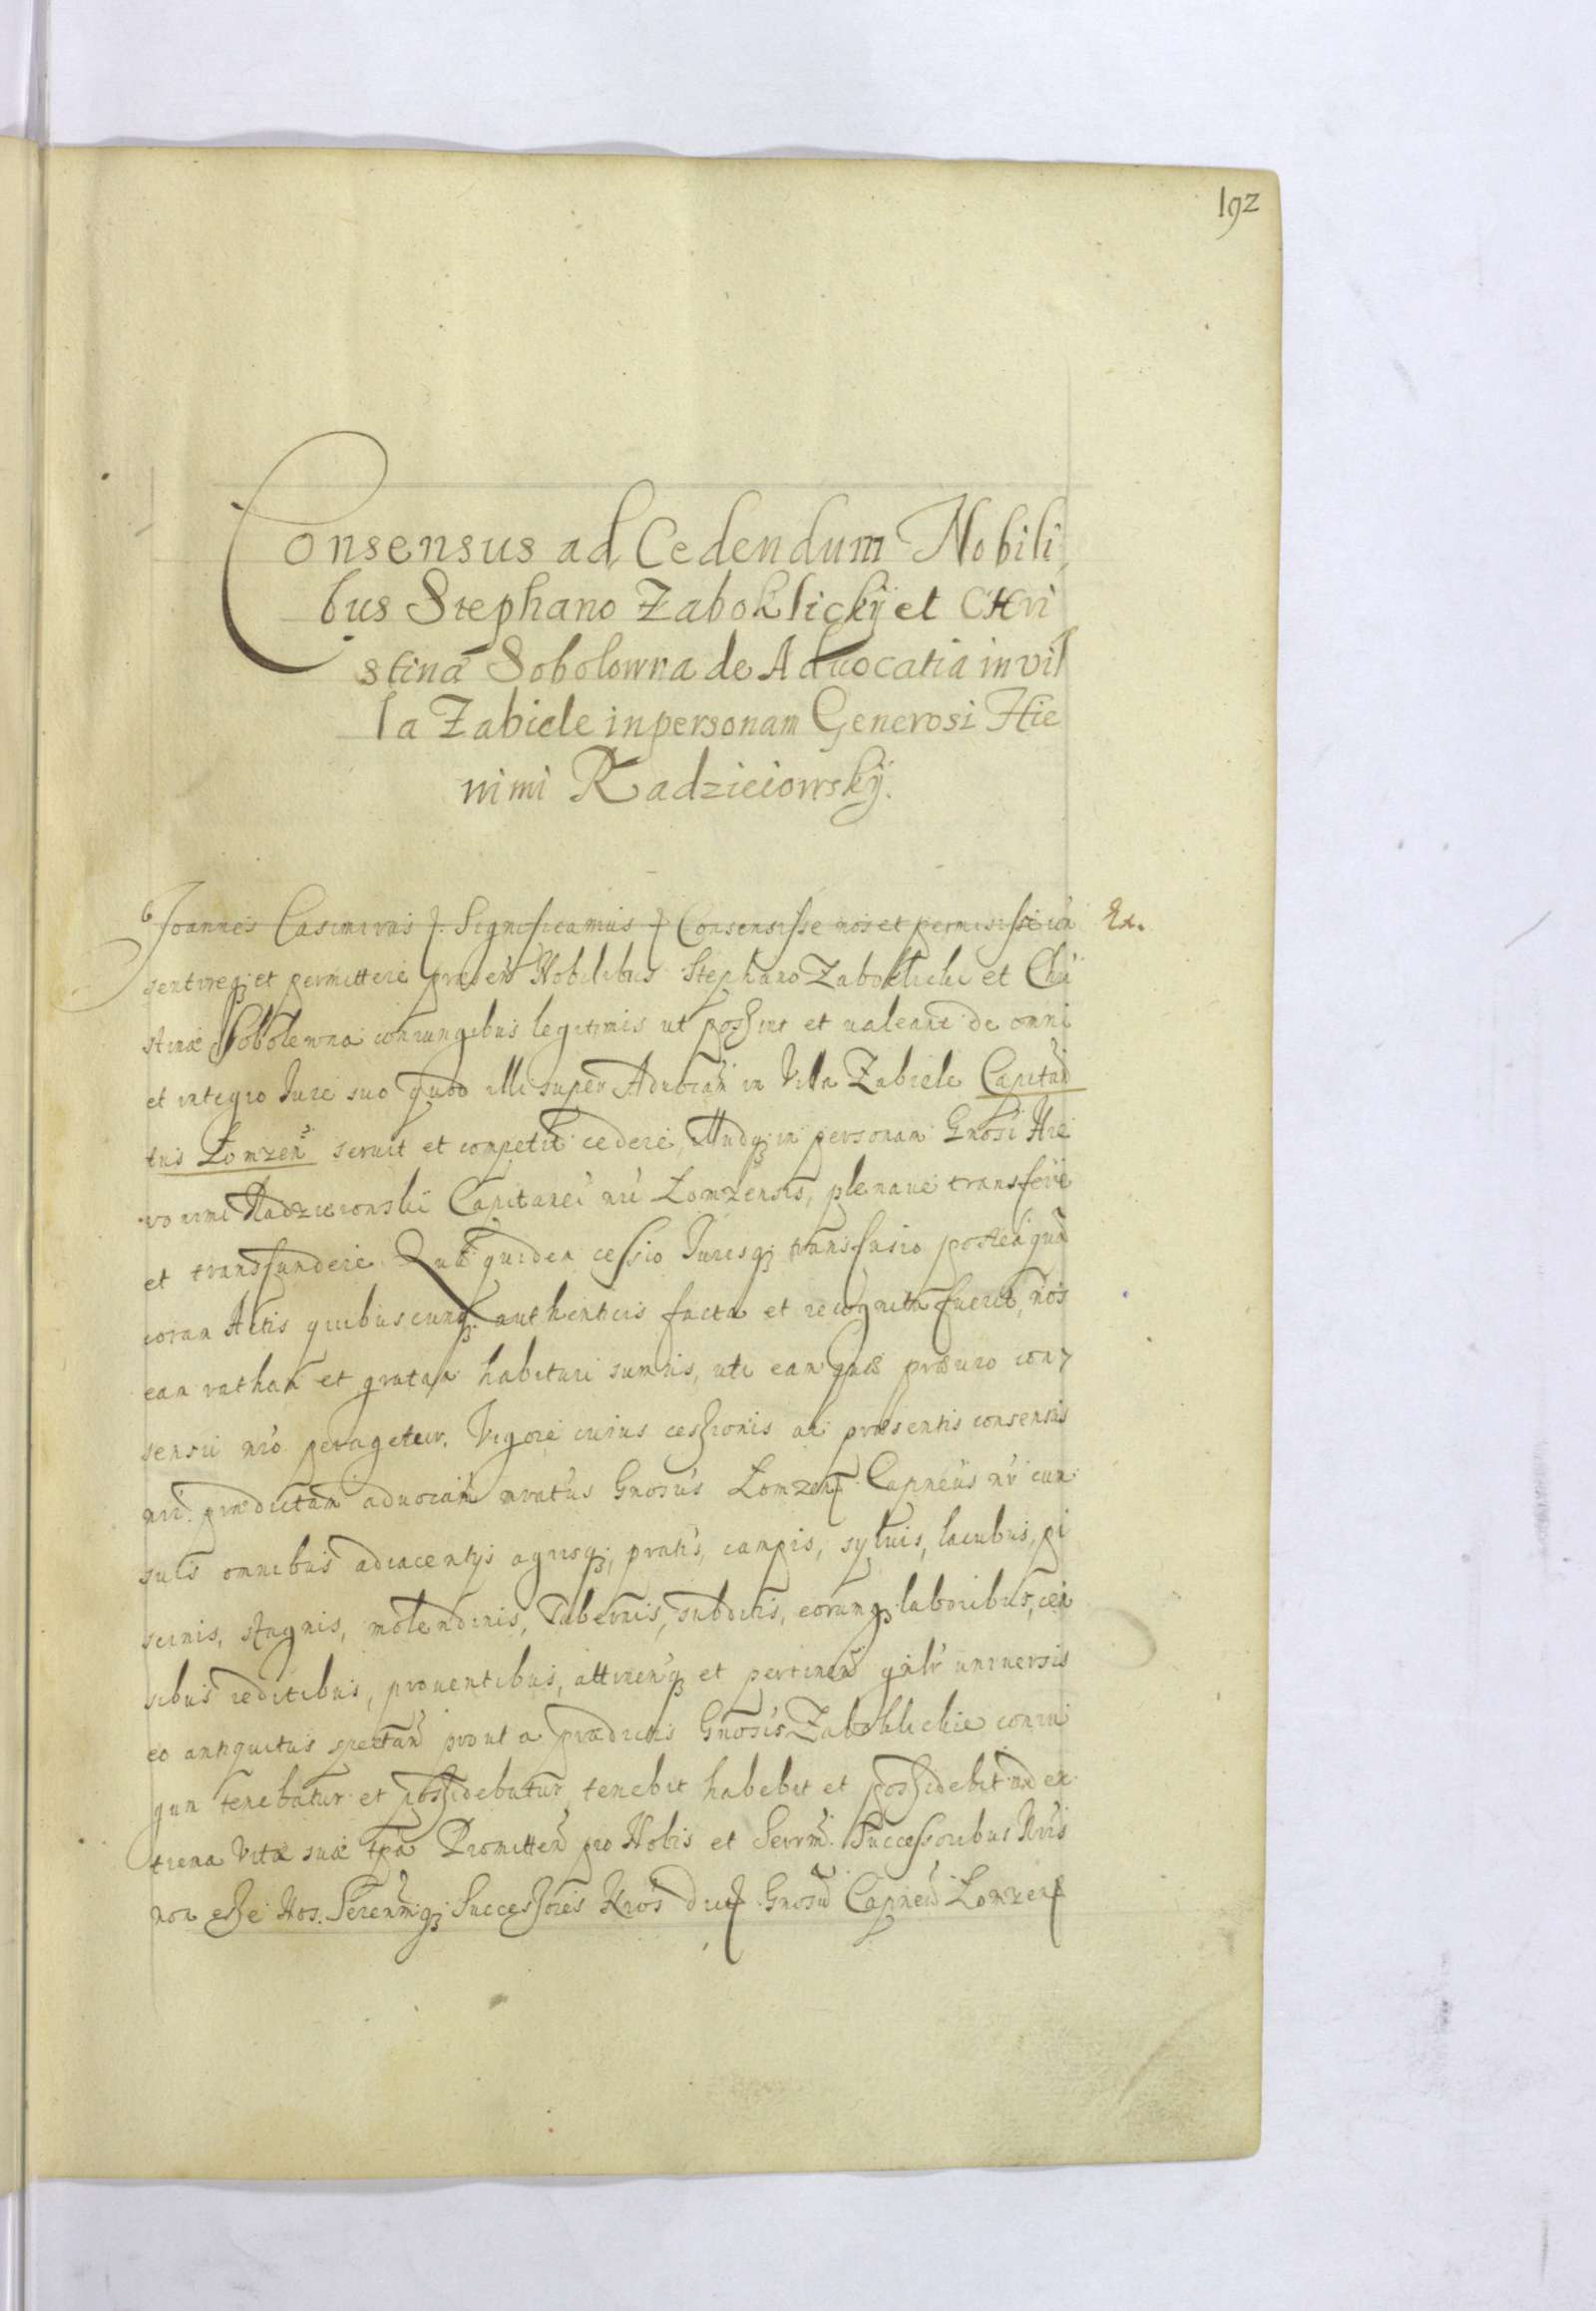 192
Consensus ad Cedendum Nobili
bus Stephano Zaboklickÿ et CHri
stina Sobolowna de Aduocatia in vil
la Zabiele in personam Generosi Hie
nimi Radzieiowskÿ.
Joannes Casimirus Significamus Consensisse nos et permisisse con Ex.
sentireq; et permittere præsen Nobilibus Stephano Zaboklicki et Chri
stinæ Sobolewna coniungibus legitimis ut possint et ualeant de omni
et integro Jure suo quod illi super Aduocatiam in Villa Zabiele Capitan
tus Lomzen seruit et competit cedere, illudq; in personam Gnosi Hie
ronimi Radzieionski Capitanei nri Lomzensis, plenaue transferre
et transfundere. Quæ quidem cessio Jurisq; transfusio postea quā
coram Actis quibuscunq; authenticis facta et recognita fuerit, nos
eam ratham et gratam habituri sumus, uti eam quæ præuio con
sensu nro peragetur. Vigore cuius cessionis ac præsentis consensus
nri prædictam aduocām Gnosus Lomzen Capneus nr cum
suis omnibus adiacentijs agrisq; pratis, campis, syluis, lacubus, pi
scinis, stagnis, molendinis, Tabernis, subditis, eorumq; laboribus, cen
sibus reditibus, prouentibus, attinenq; et pertinen gnlr uniuersis
eo antiquitus spectan prout a prædictis Gnosis Zaboklickie coniu
gum tenebatur et possidebatur, tenebit habebit et possidebit ad ex
trema Vitæ suæ tpa Promitten pro Nobis et Serrm Successoribus Nris
non esse Nos. Serenmq; Successores Nros dict Gnosū Capneū Lomzen